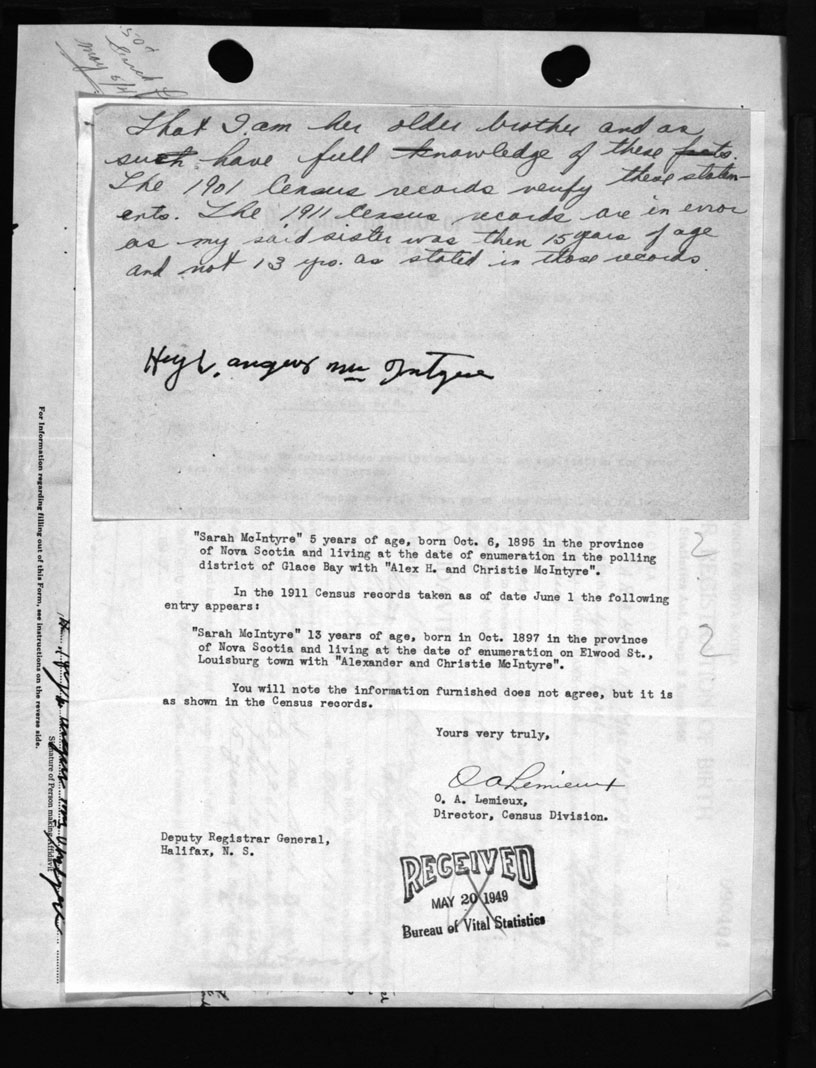 50¢
May 5/4
That I am her older brother and as
such have full knowledge of these facts.
The 1901 Census records verify these statem-
ents. The 1911 Census records are in error
as my said sister was then 15 years of age
and not 13 yrs. as stated in those records.
angus Mc Intyre
"Sarah McIntyre" 5 years of age, born Oct. 6, 1895 in the province
of Nova Scotia and living at the date of enumeration in the polling
district of Glace Bay with "Alex H. and Christie McIntyre".
In the 1911 Census records taken as of date June 1 the following
entry appears:
"Sarah McIntyre" 13 years of age, born in Oct. 1897 in the province
of Nova Scotia and living at the date of enumeration on Elwood St.,
Louisburg town with "Alexander and Christie McIntyre".
You will note the information furnished does not agree, but it is
as shown in the Census records.
Yours very truly,
O A Lemieux
O. A. Lemieux,
Director, Census Division.
Deputy Registrar General,
Halifax, N. S.
RECEIVED
MAY 20 1949
Bureau of Vital Statistics
For Information regarding filling out of this Form, see instructions on the reverse side.
Signature of Person making Affidavit